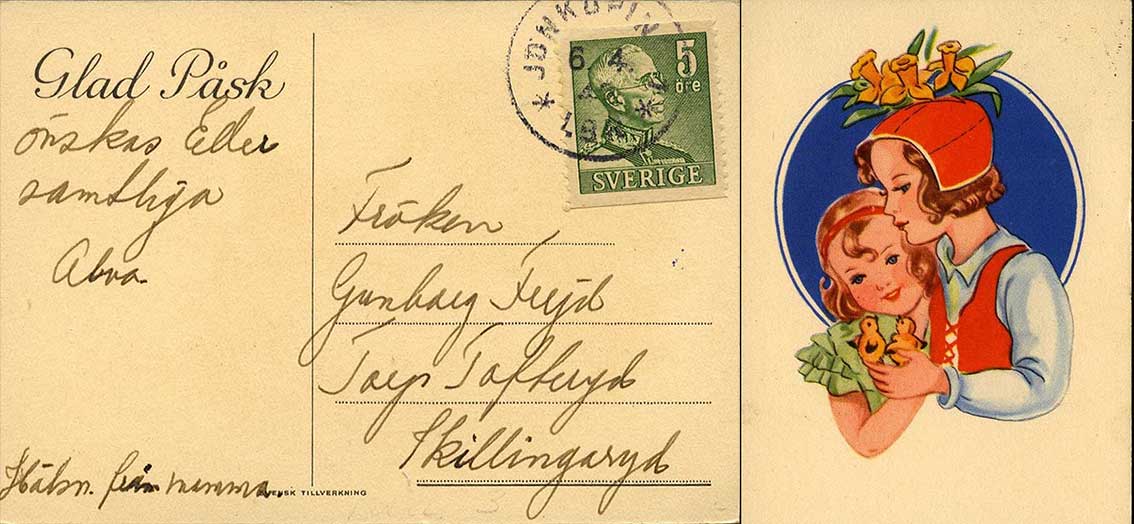 Glad Påsk
önskas Eder
samtliga
Alva.
Hälsn. från mamma.
SVENSK TILLVERKNING
JÖNKÖPING
6. 4.
LBR
5
öre
SVERIGE
Fröken
Gunborg Frejd
Tofteryd
Skillingaryd